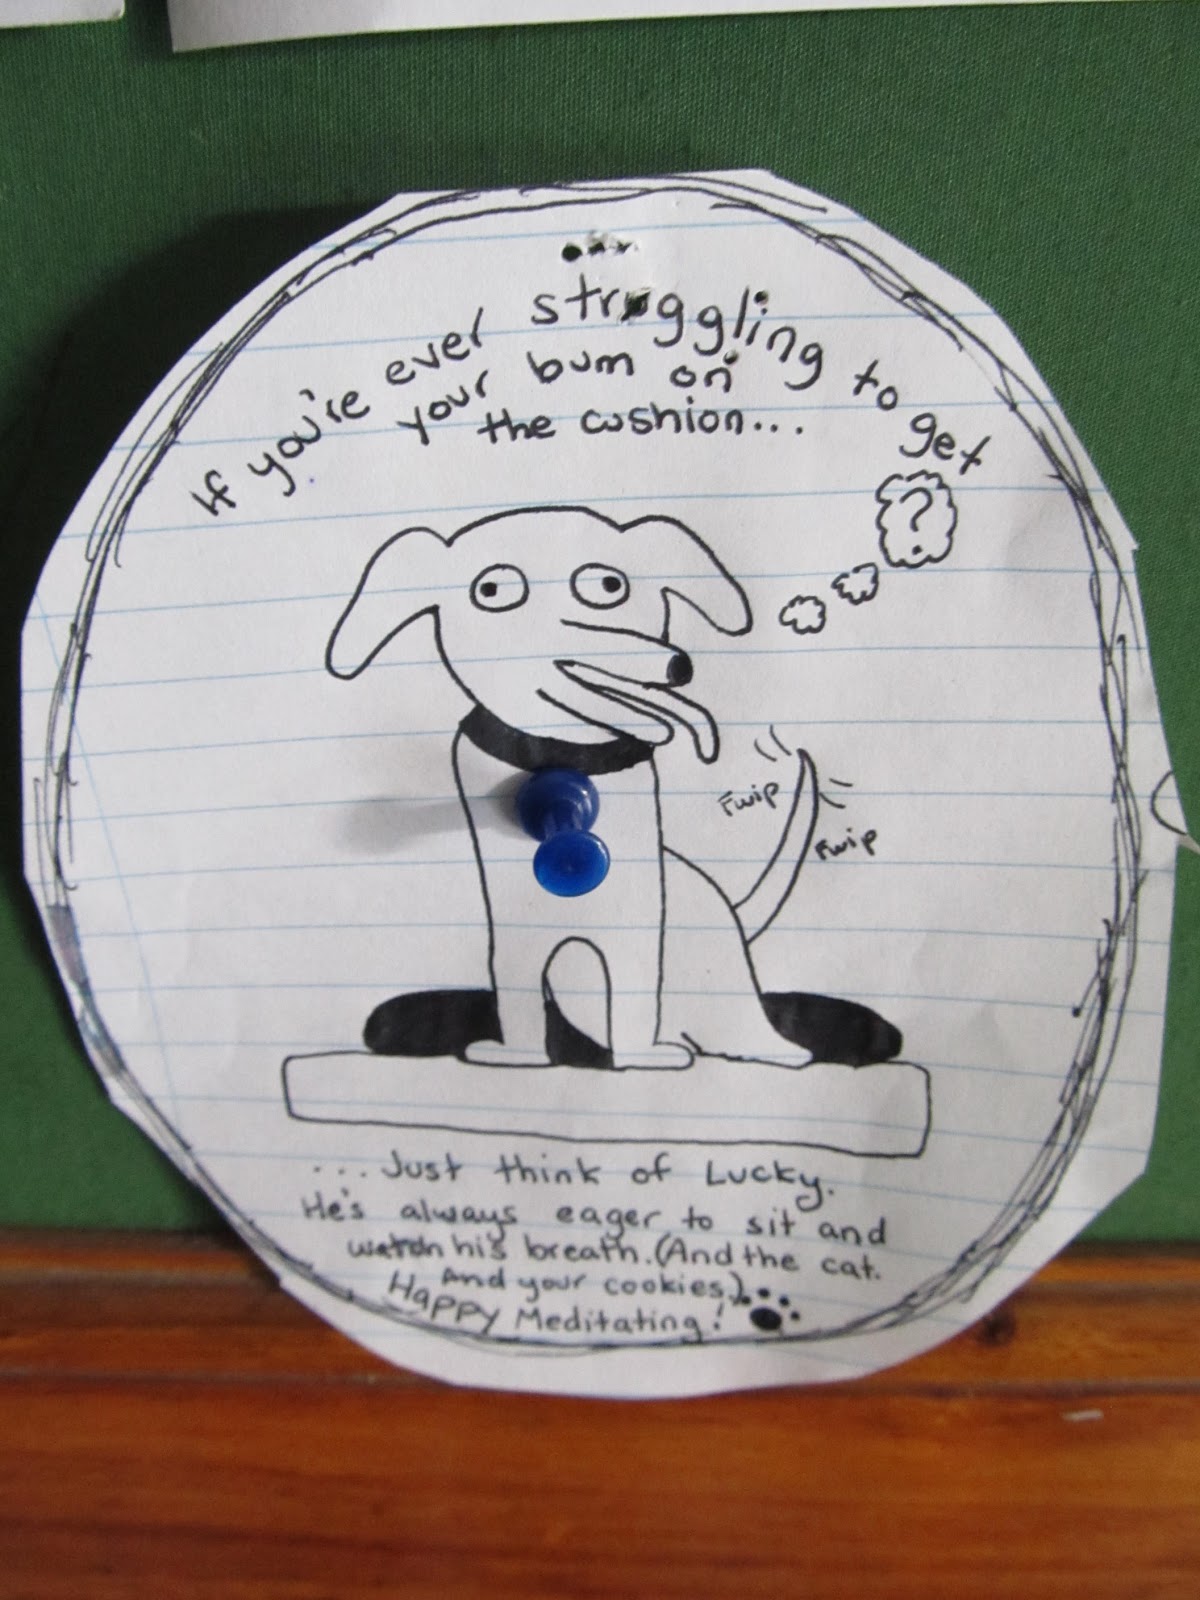 If you're ever struggling to get
your bum on
the cushion...
?
Fwip
Fwip
...Just think of Lucky.
He's always eager to sit and
watch his breath. (And the cat.
And your cookies.)
Happy Meditating!